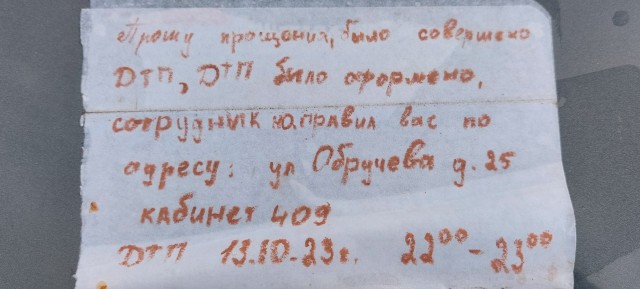 Прошу прощения, было совершено
ДТП, ДТП было оформено,
сотрудник направил вас по
адресу: ул Обручева д. 25
кабинет 409
ДТП 13.10.23г. 22⁰⁰-23⁰⁰